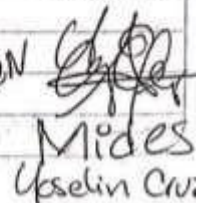 ON
Mides
Yoselin Cruz